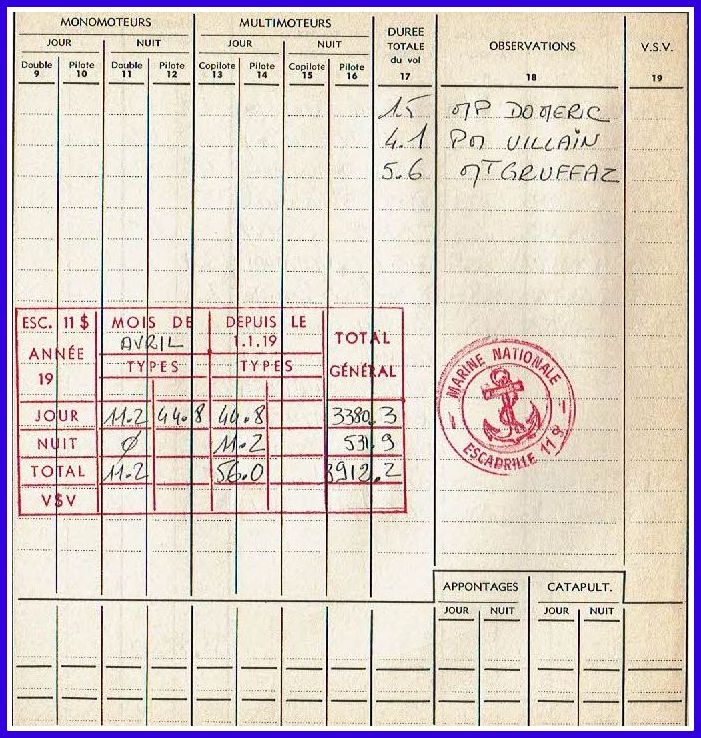 MONOMOTEURS MULTIMOTEURS DUREE TOTALE du vol OBSERVATIONS V.S.V.
JOUR NUIT JOUR NUIT
Double Pilote Double Pilote Copilote Pilote Copilote Pilote
9 10 11 12 13 14 15 16 17 18 19
1.5 MP DOMERIC
4.1 PM VILLAIN
5.6 MT GRUFFAZ
ESC. 11 S MOIS DE DEPUIS LE TOTAL GÉNÉRAL
ANNÉE 19 AVRIL 1.1.19
TYPES TYPES
JOUR 11.2 44.8 44.8 3380.3
NUIT 0 11.2 531.9
TOTAL 11.2 56.0 3912.2
VSV
MARINE NATIONALE
ESCADRILLE 11 S
APPONTAGES CATAPULT.
JOUR NUIT JOUR NUIT